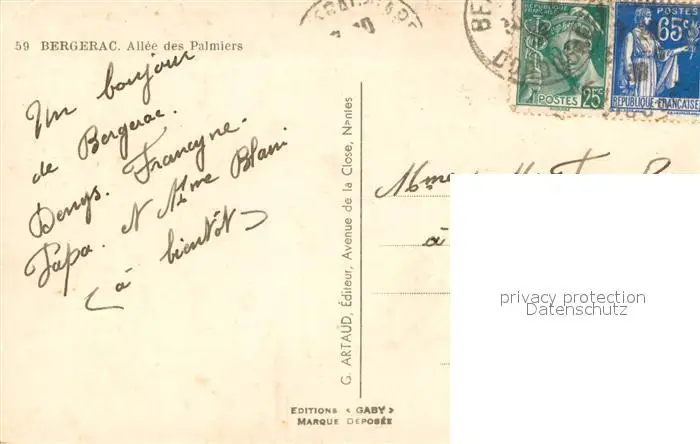 59 BERGERAC. Allée des Palmiers
Un bonjour
de Bergerac.
Denys. Francyne.
Papa. et Mme Blain
à bientôt
G. ARTAUD, Éditeur, Avenue de la Close, Nantes
EDITIONS « GABY »
MARQUE DEPOSÉE
RÉPUBLIQUE FRANÇAISE
POSTES 25c
POSTES
65c
RÉPUBLIQUE FRANÇAISE
BE
Mme
à
privacy protection
Datenschutz